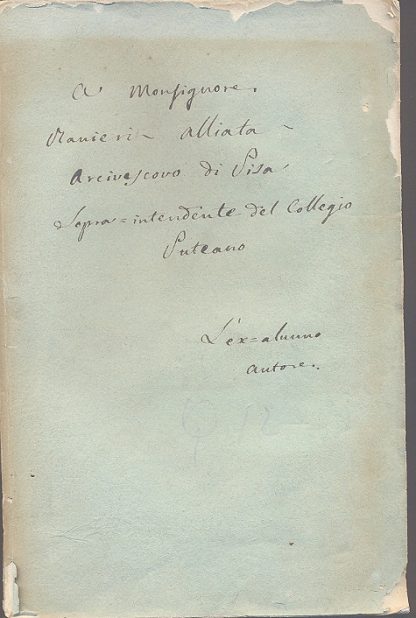 A' Monsignore.
Ranieri Alliata
Arcivescovo di Pisa
Sopra=intendente del Collegio
Puteano
L'ex=alunno
autore.